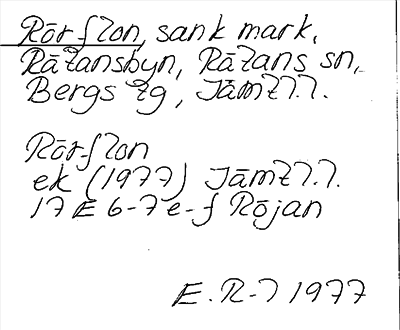 Rör-flon, sank mark,
Rätansbyn, Rätans sn,
Bergs tg, Jämtl.l.
Rör-flon
ek (1977) Jämtl.l.
17 E 6-7 e-f Röjan
E. R-l 1977